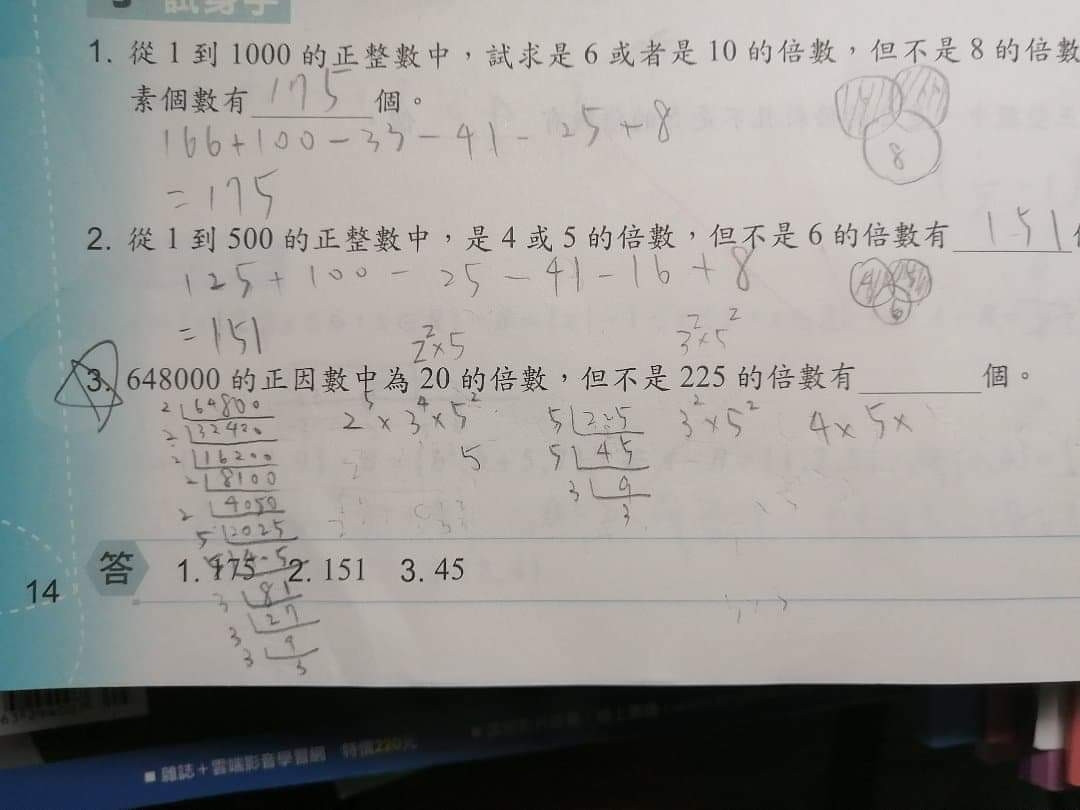 試身手
1. 從 1 到 1000 的正整數中，試求是 6 或者是 10 的倍數，但不是 8 的倍數
素個數有 175 個。
166+100-33-41-25+8
=175
8
2. 從 1 到 500 的正整數中，是 4 或 5 的倍數，但不是 6 的倍數有 151
125+100-25-41-16+8
4 5
6
=151
2²×5
3²×5²
3. 648000 的正因數中為 20 的倍數，但不是 225 的倍數有 個。
2 64800
2⁵×3⁴×5²
5 225
3²×5²
4×5×
2 32420
5
5 45
2 16200
3 9
2 8100
3
2 4050
5 2025
答 1. 175 2. 151 3. 45
3 81
3 27
3 9
3
14
■ 雜誌+雲端影音學習網 特價220元